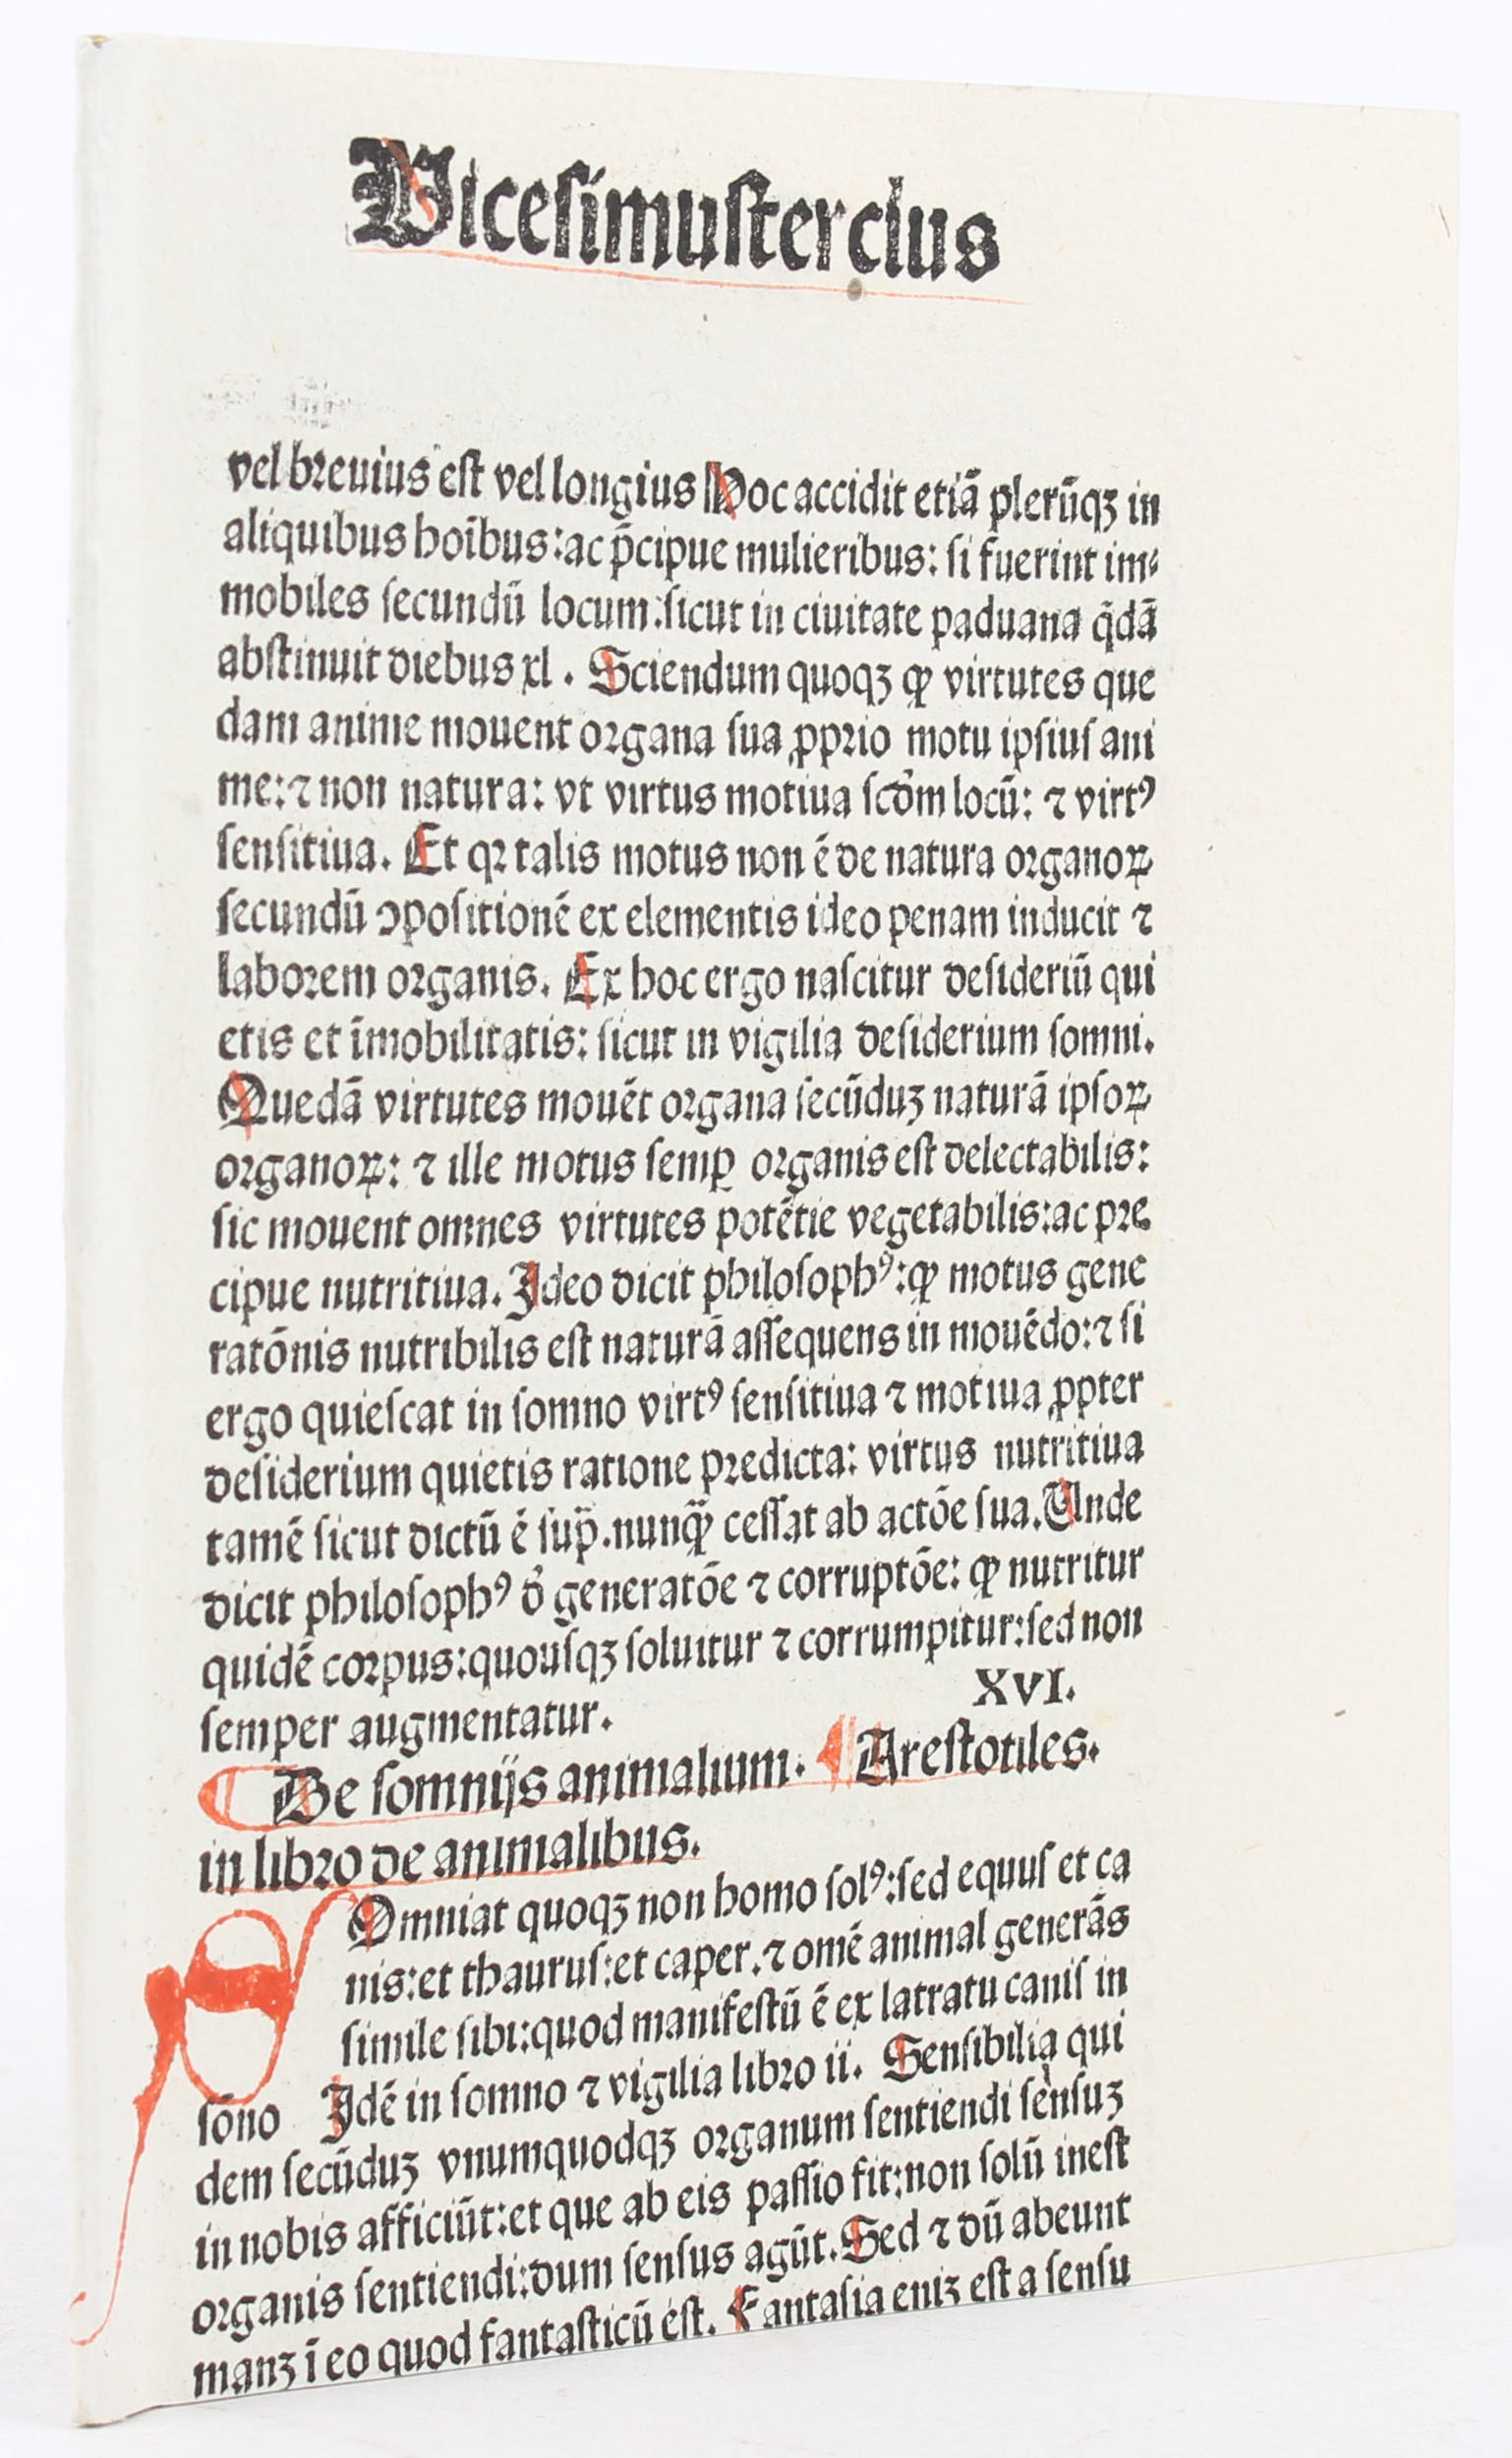 Vicesimustercius
vel breuius est vel longius Hoc accidit etiã plerũqꝫ in
aliquibus hoĩbus:ac p̃cipue mulieribus: si fuerint im⸗
mobiles secundũ locum:sicut in ciuitate paduana q̃dã
abstinuit diebus xl. Sciendum quoqꝫ ꝙ virtutes que
dam anime mouent organa sua ꝓprio motu ipsius ani
me:⁊ non natura: vt virtus motiua scd̓m locũ: ⁊ virtꝰ
sensitiua. Et qꝛ talis motus non ẽ de natura organoꝝ
secundũ ↄpositionẽ ex elementis ideo penam inducit ⁊
laborem organis. Ex hoc ergo nascitur desideriũ qui
etis et ĩmobilitatis: sicut in vigilia desiderium somni.
Quedã virtutes mouẽt organa secũduꝫ naturã ipsoꝝ
organoꝝ: ⁊ ille motus semꝑ organis est delectabilis:
sic mouent omnes virtutes potẽtie vegetabilis:ac pre
cipue nutritiua. Ideo dicit philosophꝰ:ꝙ motus gene
ratõnis nutribilis est naturã assequens in mouẽdo:⁊ si
ergo quiescat in somno virtꝰ sensitiua ⁊ motiua ꝓpter
desiderium quietis ratione predicta: virtus nutritiua
tamẽ sicut dictũ ẽ sup̃.nunꝙ̃ cessat ab actõe sua.Unde
dicit philosophꝰ d̓ generatõe ⁊ corruptõe: ꝙ nutritur
quidẽ corpus:quousqꝫ soluitur ⁊ corrumpitur:sed non
semper augmentatur. XVI.
De somnijs animalium. ¶ Arestotiles.
in libro de animalibus.
Somniat quoqꝫ non homo solꝰ:sed equus et ca
nis:et thaurus:et caper.⁊ omẽ animal generãs
simile sibi:quod manifestũ ẽ ex latratu canis in
sono Idẽ in somno ⁊ vigilia libro ii. Sensibilia qui
dem secũduꝫ vnumquodqꝫ organum sentiendi sensuꝫ
in nobis afficiũt:et que ab eis passio fit:non solũ inest
organis sentiendi:dum sensus agũt.Sed ⁊ dũ abeunt
manꝫ ĩ eo quod fantasticũ est. Fantasia eniꝫ est a sensu